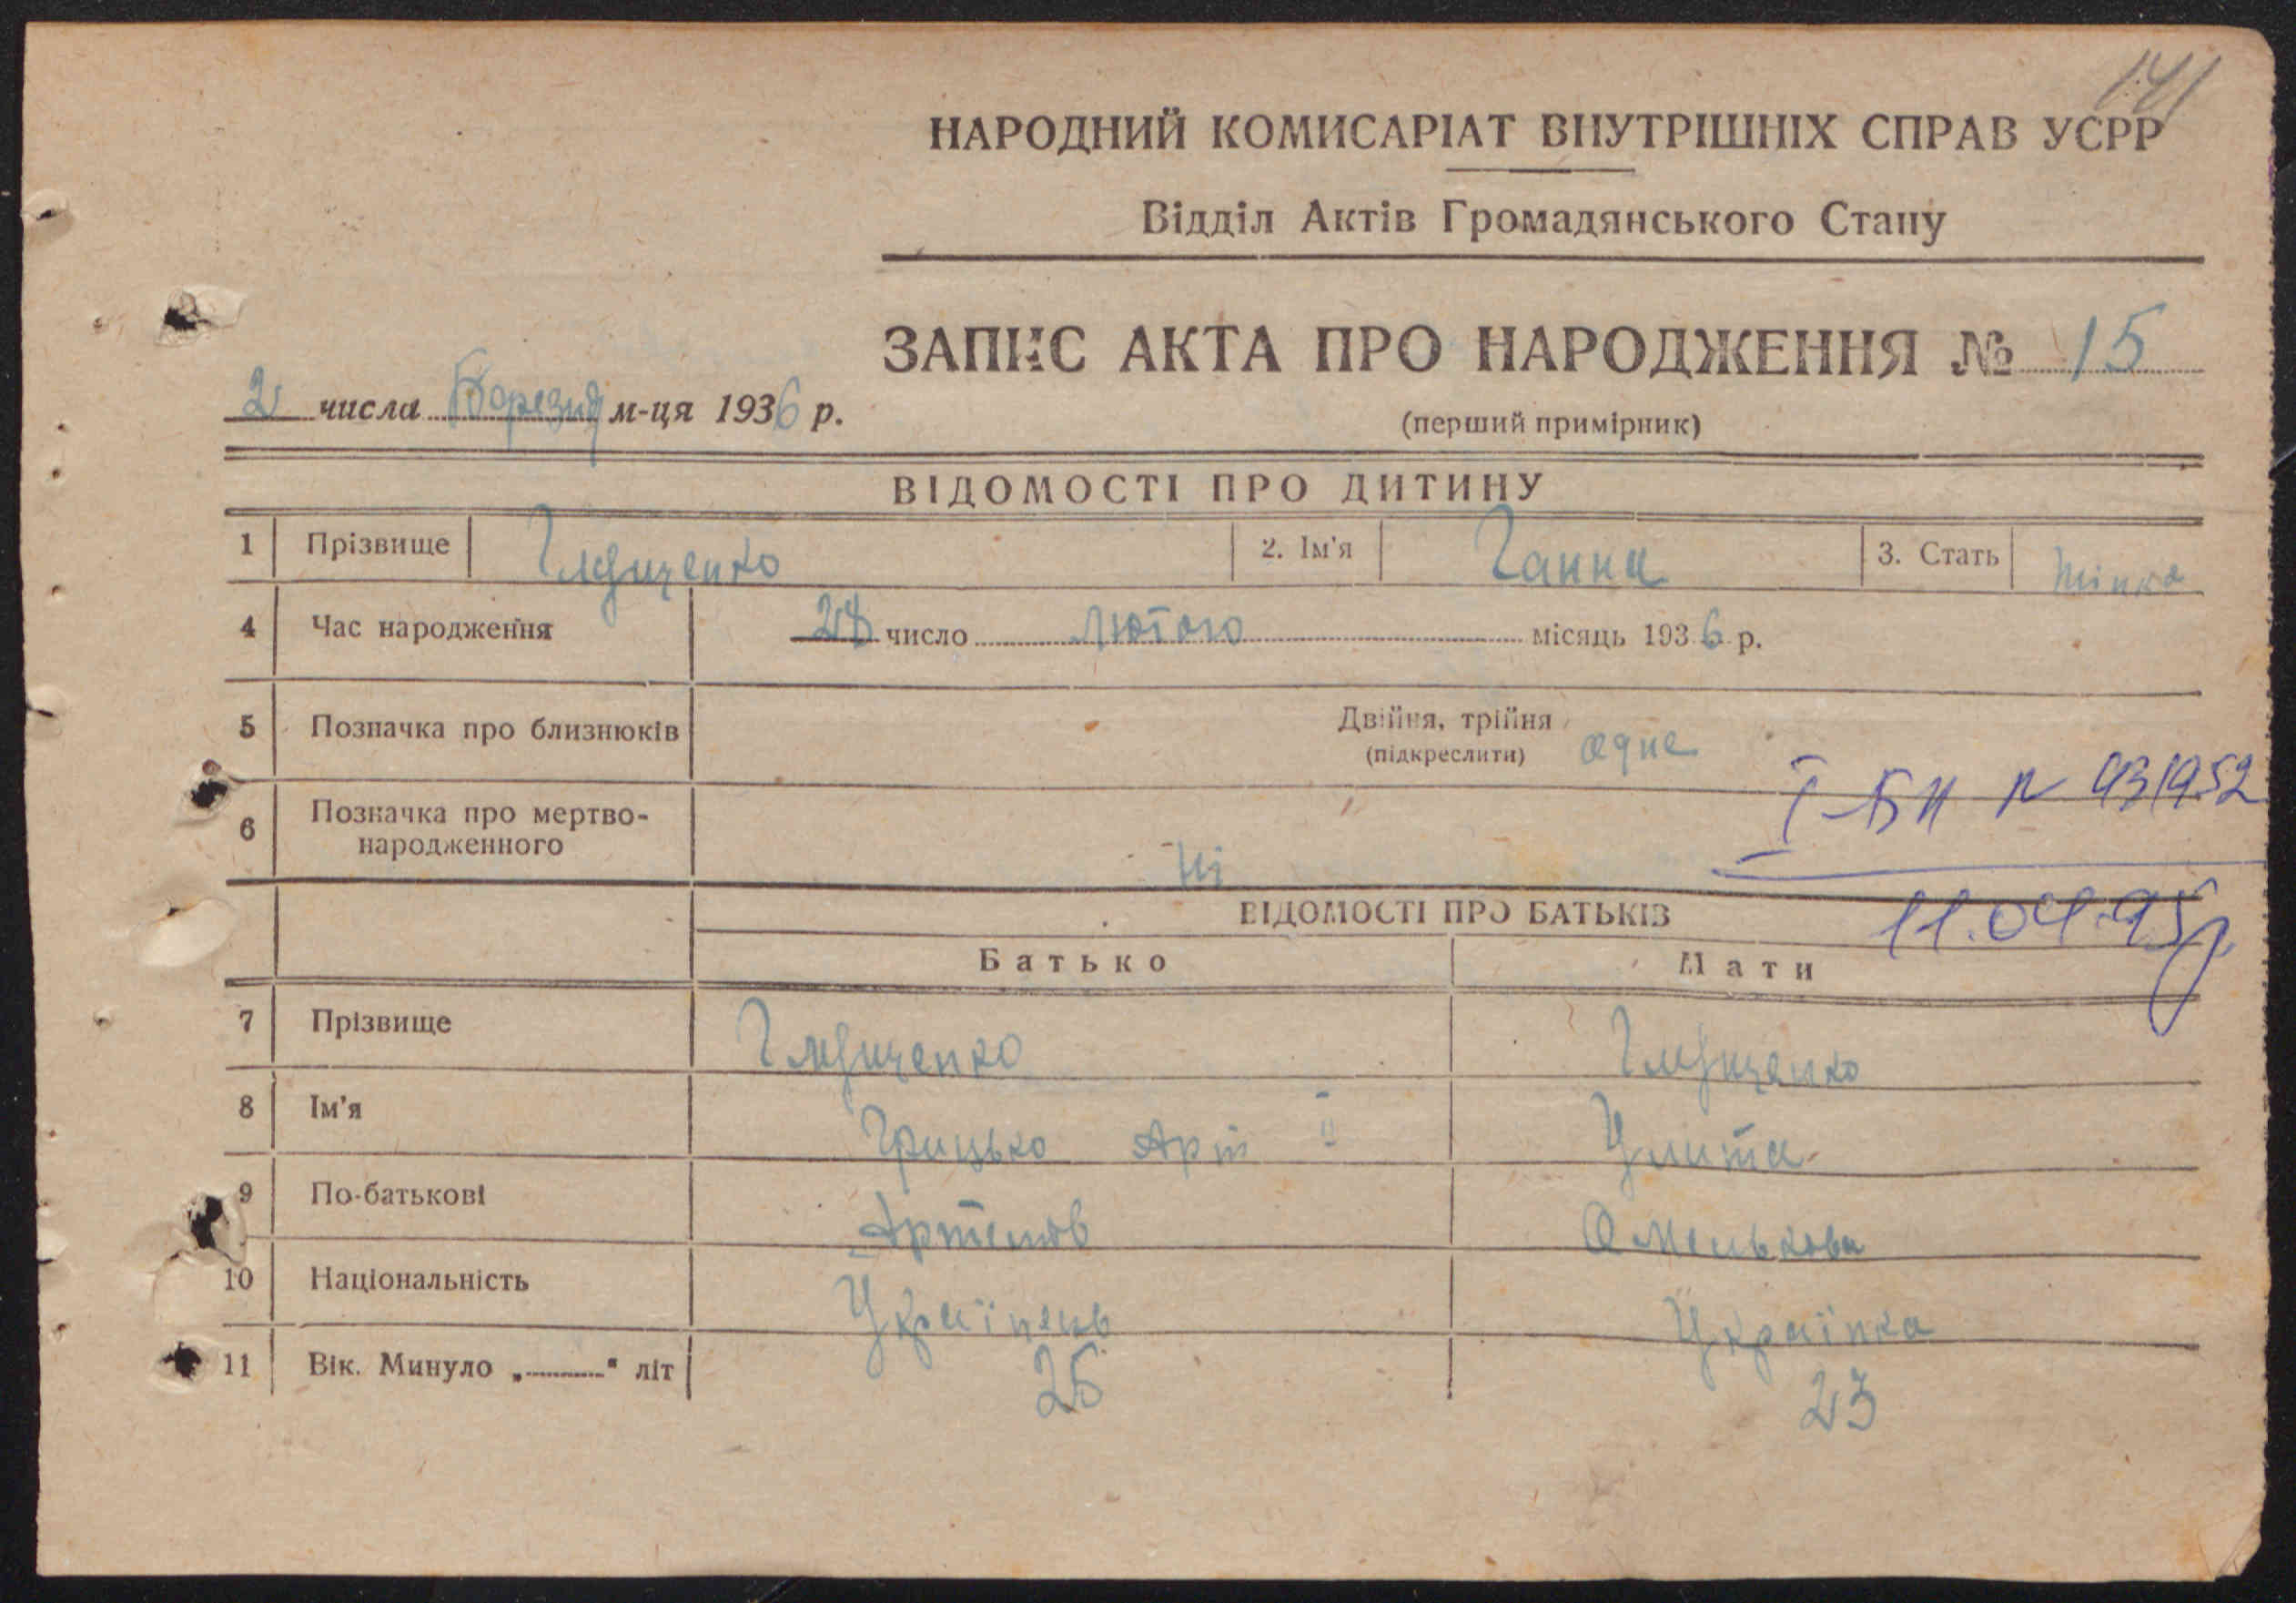 141
НАРОДНИЙ КОМИСАРІАТ ВНУТРІШНІХ СПРАВ УСРР
Відділ Актів Громадянського Стану
ЗАПИС АКТА ПРО НАРОДЖЕННЯ № 15
2 числа Березня м-ця 1936 р.
(перший примірник)
ВІДОМОСТІ ПРО ДИТИНУ
1 Прізвище Глущенко 2. Ім'я Ганна 3. Стать жінка
4 Час народження 28 число лютого місяць 1936 р.
5 Позначка про близнюків Двійня, трійня одне
(підкреслити)
І БН № 431952
6 Позначка про мертво-
народженного ні
11.04.95р
ВІДОМОСТІ ПРО БАТЬКІВ
Батько Мати
7 Прізвище Глущенко Глущенко
8 Ім'я Грицько Арт Улита
9 По-батькові Артемів Оменькова
10 Національність Українець Українка
11 Вік. Минуло „ “ літ 26 23